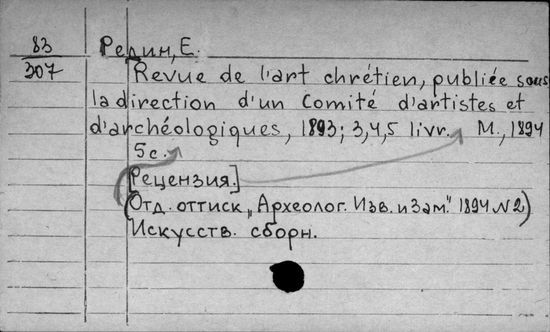 83 Редин, Е.
307 [Revue de l'art chrétien, publiée sous
la direction d'un Comité d'artistes et
d'archéologiques, 1893; 3,4,5 livr. М., 1894
5 с.
[Рецензия.]
(Отд. оттиск „Археолог. Изв. и Зам." 1894 №2)
Искусств. сборн.